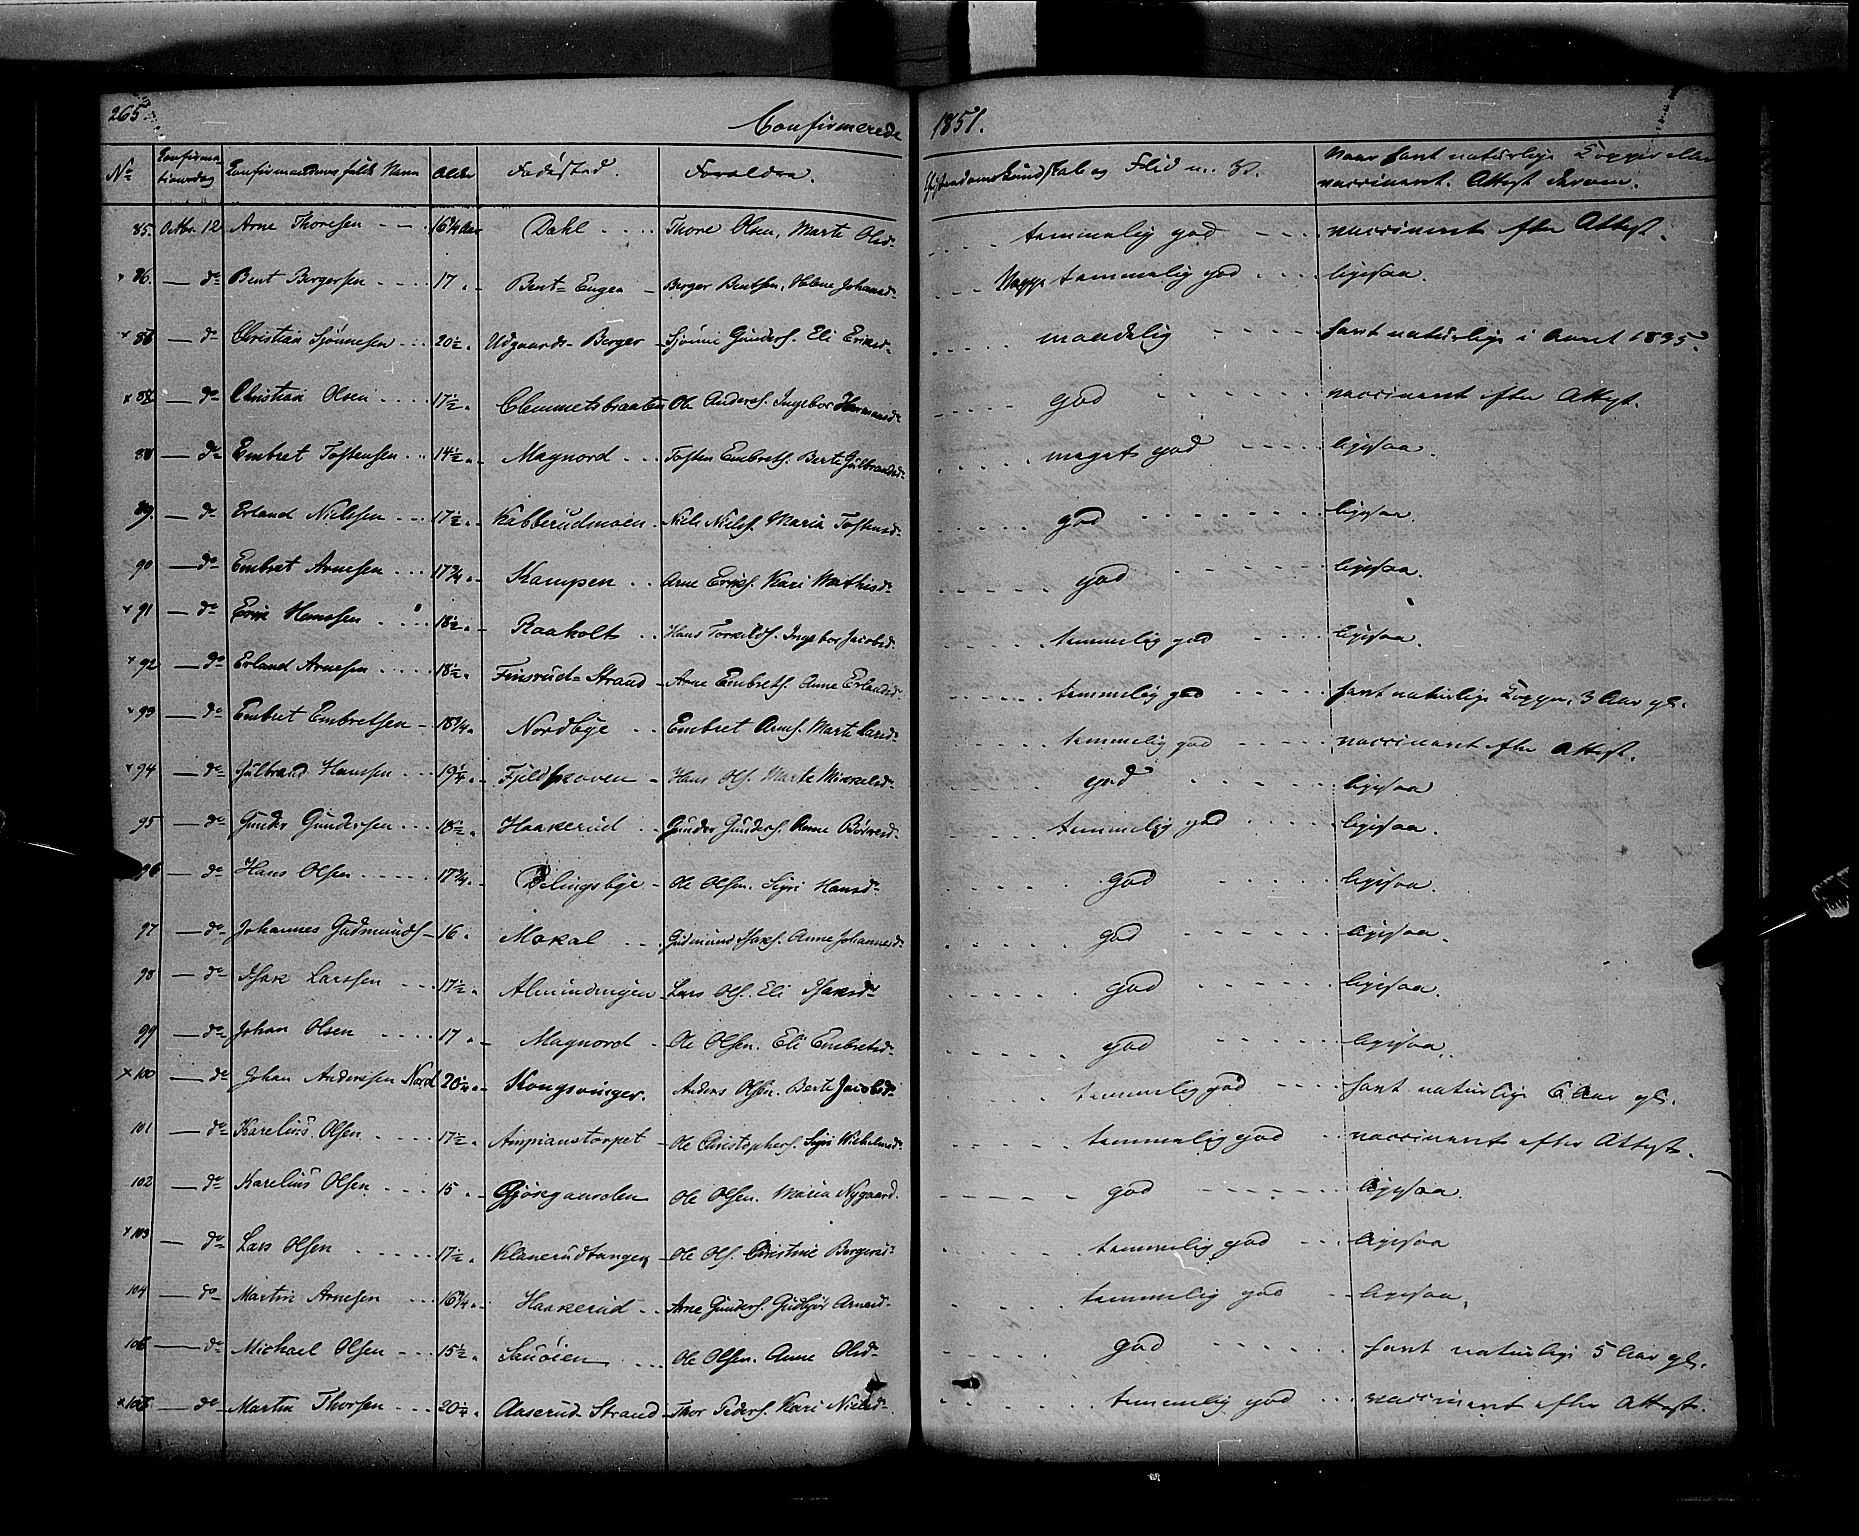 265
Confirmerede 1851.
No Confirmationsdag Confirmandens fulde Navn Alder Fødested. Forældre. Christendomskundskab og Flid m. V. Naar havt naturlige Kopper eller vaccineret. Attest derom.
85. Octbr. 12 Arne Thoresen 16 3/4 Aar Dahl Thore Olsen, Marte Olsd. temmelig god vaccineret efter Attest.
x 86. — do Bent Bergersen 17 " Bent-Eugen Berger Bentsen, Helene Johansd. temmelig god ligesaa.
x 86 — do Christian Sjønnesen 20 1/2 " Udgaards-Berger Sjønne Gunders. Eli Eriksd. maadelig havt naturlige i Aaret 1835.
x 87 — do Christian Olsen 17 1/2 " Clemmetsbraaten Ole Anders. Ingebor Hermansd. god vaccineret efter Attest.
88 — do Embret Tostensen 14 1/2 " Magnord Tosten Embrets. Berte Gulbrandsd. meget god ligesaa.
89. — do Erland Nielssen 17 1/2 " Kabberudmoen Niels Niels. Maria Tostensd. god ligesaa.
90 — do Embret Arnesen 17 3/4 " Kampen Arne Eriks. Kari Mathisd. god ligesaa.
x 91 — do Erik Hanssen 18 1/2 " Raaholt Hans Torkilds. Ingebor Jacobsd. temmelig god ligesaa.
x 92 — do Erland Arnesen 18 1/2 " Finsrud-Strand Arne Embrets. Anne Erlandsd. temmelig god havt naturlige Kopper, 3 Aar gl.
x 93 — do Embret Embretsen 18 3/4 " Nordbye Embret Arnes. Marte Larsd. temmelig god vaccineret efter Attest.
x 94 — do Gulbrand Hanssen 19 1/4 " Fjeldskoven Hans Ols. Marte Mikkelsd. god ligesaa
95 — do Gunder Gundersen 18 1/2 " Haakerud Gunder Gunders. Anne Børresd. temmelig god ligesaa.
96 — do Hans Olsen 17 3/4 " Delingsbye Ole Olsen. Sigri Hansd. god ligesaa.
97 — do Johannes Gudmunds. 16 " Mokal Gudmund Isaks. Anne Johannesd. god ligesaa.
98 — do Isak Larssen 17 1/2 " Almindingen Lars Ols. Eli Isaksd. god ligesaa.
99 — do Johan Olsen 17 " Magnord Ole Olsen. Eli Embretsd. god ligesaa.
x 100 — do Johan Andersen Nord 20 1/4 " Kongsvinger. Anders Olsen. Berte Jacobsd. temmelig god havt naturlige 6 Aar gl.
101 — do Karelius Olsen 17 1/2 " Ampianstorpet Ole Christophers. Sigri Wilhelmsd. temmelig god vaccineret efter Attest.
102 — do Karelius Olsen 15 " Gjøsgaarden Ole Olsen. Maria Nygaard. god ligesaa.
x 103 — do Lars Olsen 17 1/2 " Klanerudtangen Ole Ols. Christine Bergersd. temmelig god ligesaa
104 — do Martin Arnesen 16 3/4 " Haakerud Arne Gunders. Gudbjør Arnesd. temmelig god ligesaa.
105 — do Michael Olsen 15 1/2 " Ole Olsen. Anne Olsd. god havt naturlige 5 Aar gl.
x 106 — do Martin Thorsen 20 1/4 " Aaserud-Strand Thor Peders. Kari Nielsd. temmelig god vaccineret efter Attest.